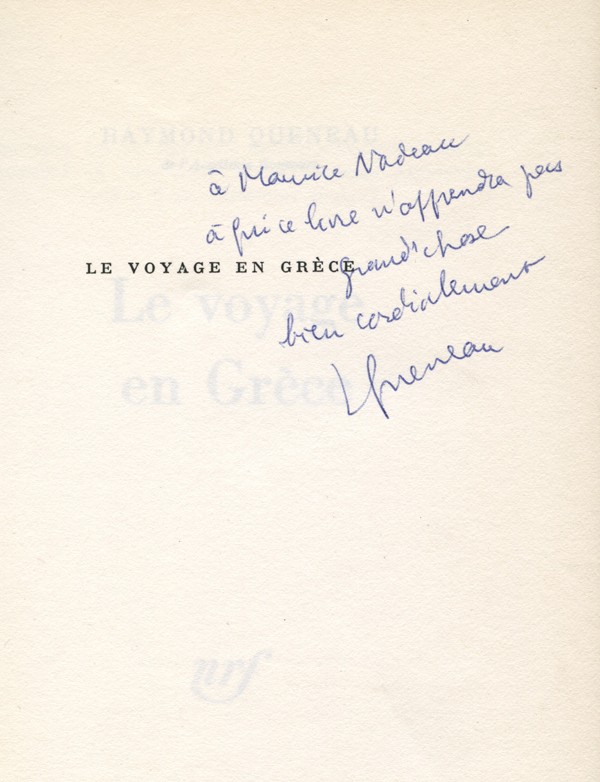 RAYMOND QUENEAU
à Maurice Nadeau
à qui ce livre n'apprendra pas
grand'chose
LE VOYAGE EN GRÈCE
bien cordialement
Le voyage
en Grèce
Queneau
nrf